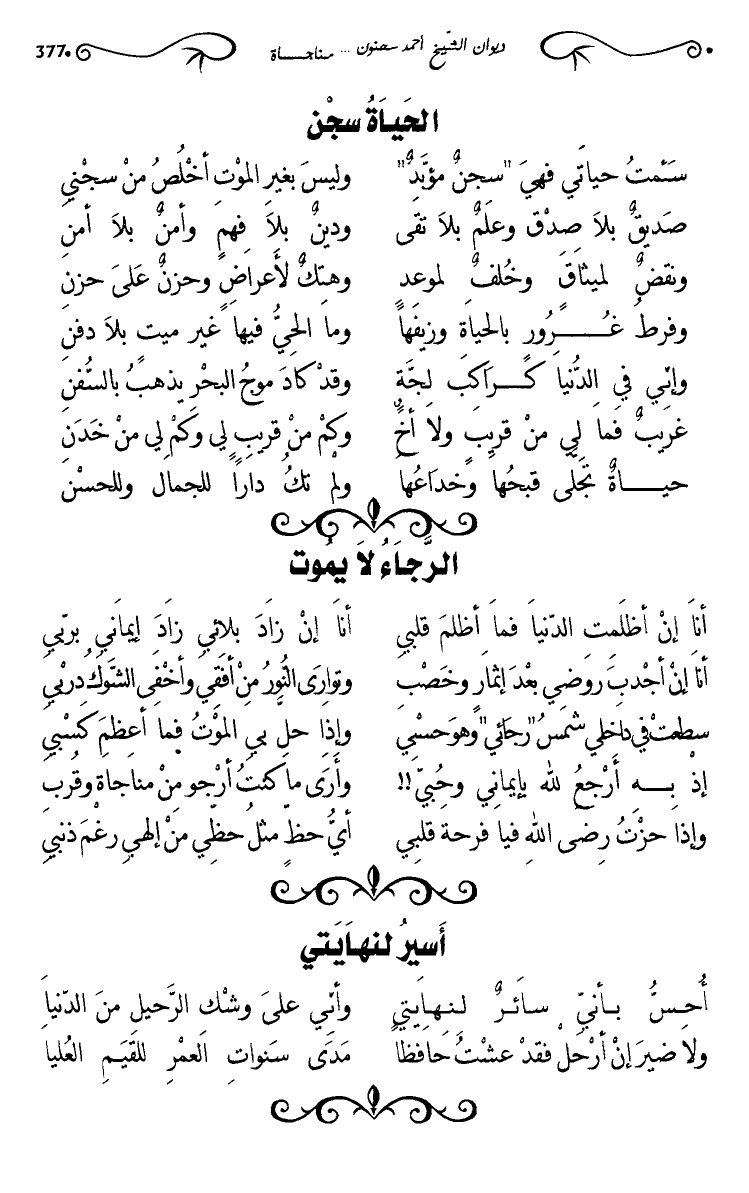 ديوان الشّيخ أحمد سحنون ... مناجاة 377
الحَيَاةُ سجْن
سَئمتُ حياتي فهيَ "سجنٌ مؤبَّدٌ" وليسَ بغيرِ الموْت أخْلُصُ منْ سجْنيِ
صَديقٌ بلاَ صِدْق وعلمٌ بلا تقَى ودينٌ بلاَ فهمٍ وأمنٌ بلاَ أمنِ
ونقضٌ لميثاقِ وخُلفٌ لموعد وهتكٌ لأعراضٍ وحزنٌ عَلىَ حزنِ
وفرطُ غُرُورِ بالحياة وزيفهَا وما الحيُّ فيها غير ميت بلاَ دفنِ
وإنّي في الدُّنياَ كَرَاكبَ لجَّةٍ وقدْ كادَ موجُ البحْرِ يذهبُ بالسُّفنِ
غريبٌ فمَا لي منْ قريبٍ ولا أخٌ وكمْ منْ قريبٍ لي وكمْ لي منْ خَدَنِ
حياةٌ تجَلى قبحُها وخداعُها ولم تكُ داراً للجمال وللحسْنِ
الرَّجَاءُ لاَ يمُوت
أناَ إنْ أظلَمت الدّنياَ فماَ أظلمَ قلبيِ أناَ إنْ زادَ بلائي زادَ إيماَني بربّيِ
أناَ إنْ أجْدبَ روضي بعْدَ إثمارٍ وخَصْبِ وتوارَى النُّورُ منْ أفقي وأخْفى الشّوكُ دربْيِ
سطعتْ في داخلي شمسُ "رجَائي" وهوَ حسْبيِ وإذَا حل بي الموْتُ فمَا أعظمَ كسْبيِ
إذْ به أَرْجعُ لله بإيماني وحُبيّ!! وأرَى ما كنتُ أرْجو منْ مناجاة وقربِ
وإذا حزْتُ رضى الله فيا فرحة قلبيِ أيُّ حظّ مثلُ حظّي منْ إلهي رغمَ ذنبيِ
أَسيرُ لنهايَتي
أُحِسُّ بأنيّ سائرٌ لنهايتيِ وأنّي علىَ وشْك الرَّحيل منَ الدّنياَ
ولا ضيرَ إنْ أرْحل فقدْ عشتُ حافظًا مَدَى سَنواتِ العمْرِ للقيَمِ العُليا